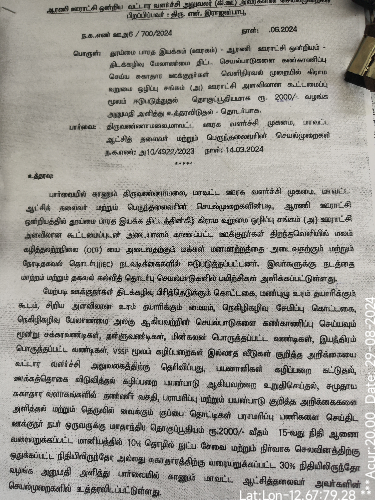 ஆரணி ஊராட்சி ஒன்றிய வட்டார வளர்ச்சி அலுவலர் (கி.ஊ)
பிறப்பிப்பவர் : திரு. எஸ். இராஜன்பாபு,
ந.க.எண் ஊ.அ6 / 700/2024 நாள்: .06.2024
பொருள்: தூய்மை பாரத இயக்கம் (ஊரகம்) - ஆரணி ஊராட்சி ஒன்றியம் -
திடக்கழிவு மேலாண்மை திட்ட செயல்பாடுகளை கண்காணிப்பு
செய்ய சுகாதார ஊக்குநர்கள் வெளிநிரவல் முறையில் கிராம
வறுமை ஒழிப்பு சங்கம் (அ) ஊராட்சி அளவிலான கூட்டமைப்பு
மூலம் ஈடுபடுத்துதல் தொகுப்பூதியமாக ரூ. 2000/- வழங்க
அனுமதி அளித்து உத்தரவிடுதல் - தொடர்பாக.
பார்வை: திருவண்ணாமலை, மாவட்ட ஊரக வளர்ச்சி முகமை, மாவட்ட
ஆட்சித் தலைவர் மற்றும் பெருந்தலைவரின் செயல்முறைகள்
ந.க.எண்: அ10/4922/2023 நாள்: 14.03.2024
*****
உத்தரவு:
பார்வையில் காணும் திருவண்ணாமலை, மாவட்ட ஊரக வளர்ச்சி முகமை, மாவட்ட
ஆட்சித் தலைவர் மற்றும் பெருந்தலைவரின் செயல்முறைகளின்படி, ஆரணி ஊராட்சி
ஒன்றியத்தில் தூய்மை பாரத இயக்க திட்டத்தின்கீழ் கிராம வறுமை ஒழிப்பு சங்கம் (அ) ஊராட்சி
அளவிலான கூட்டமைப்புடன் அடையாளம் காணப்பட்ட ஊக்குநர்கள் திறந்தவெளியில் மலம்
கழித்தலற்றநிலை (ODF) யை அடைவதற்கும் மக்கள் மனமாற்றத்தை அடைவதற்கும் மற்றும்
தொடர்பு(IEC) நடவடிக்கைகளில் ஈடுபடுத்தப்பட்டனர். இவர்களுக்கு நடத்தை
மாற்றம் மற்றும் தகவல் கல்வித் தொடர்பு செயல்பாடுகளில் பயிற்சிகள் அளிக்கப்பட்டுள்ளது.
மேற்படி ஊக்குநர்கள் திடக்கழிவு பிரித்தெடுக்கும் கொட்டகை, மண்புழு உரம் தயாரிக்கும்
கூடம், சிறிய அளவிலான உரம் தயாரிக்கும் மையம், நெகிழிகழிவு சேமிப்பு கொட்டகை,
நெகிழிகழிவு மேலாண்மை அலகு ஆகியவற்றின் செயல்பாடுகளை கண்காணிப்பு செய்யவும்
மூன்று சக்கரவண்டிகள், தள்ளுவண்டிகள், மின்கலன் பொருத்தப்பட்ட வண்டிகள், இயந்திரம்
பொருத்தப்பட்ட வண்டிகள், VSSF மூலம் கழிப்பறைகள் இல்லாத வீடுகள் குறித்த அறிக்கையை
வட்டார வளர்ச்சி அலுவலகத்திற்கு தெரிவிப்பது, பயனாளிகள் கழிப்பறை கட்டுதல்,
ஊக்கத்தொகை விடுவித்தல் கழிப்பறை பயன்பாடு ஆகியவற்றை உறுதிசெய்தல், சமுதாய
சுகாதார வளாகங்களில் தண்ணீர் வசதி, பராமரிப்பு மற்றும் பயன்பாடு குறித்த அறிக்கைகளை
அளித்தல் மற்றும் தெருவில் வைக்கும் குப்பை தொட்டிகள் பராமரிப்பு பணிகளை செய்திட
ஊக்குநர் நபர் ஒருவருக்கு மாதாந்திர தொகுப்பூதியம் ரூ.2000/- வீதம் 15-வது நிதி ஆணை
வரையறுக்கப்பட்ட மானியத்தில் 10% தொழில் நுட்ப சேவை மற்றும் நிர்வாக செலவினத்திற்கு
ஒதுக்கப்பட்ட நிதியிலிருந்தோ அல்லது சுகாதாரத்திற்கு வரையறுக்கப்பட்ட 30% நிதியிலிருந்தோ
வழங்க அனுமதி அளித்து பார்வையில் காணும் மாவட்ட ஆட்சித்தலைவர் அவர்களின்
செயல்முறைகளில் உத்தரவிடப்பட்டுள்ளது.
Lat:Lon-12.67:79.28
Acur:20.00 Date: 29-08-2024